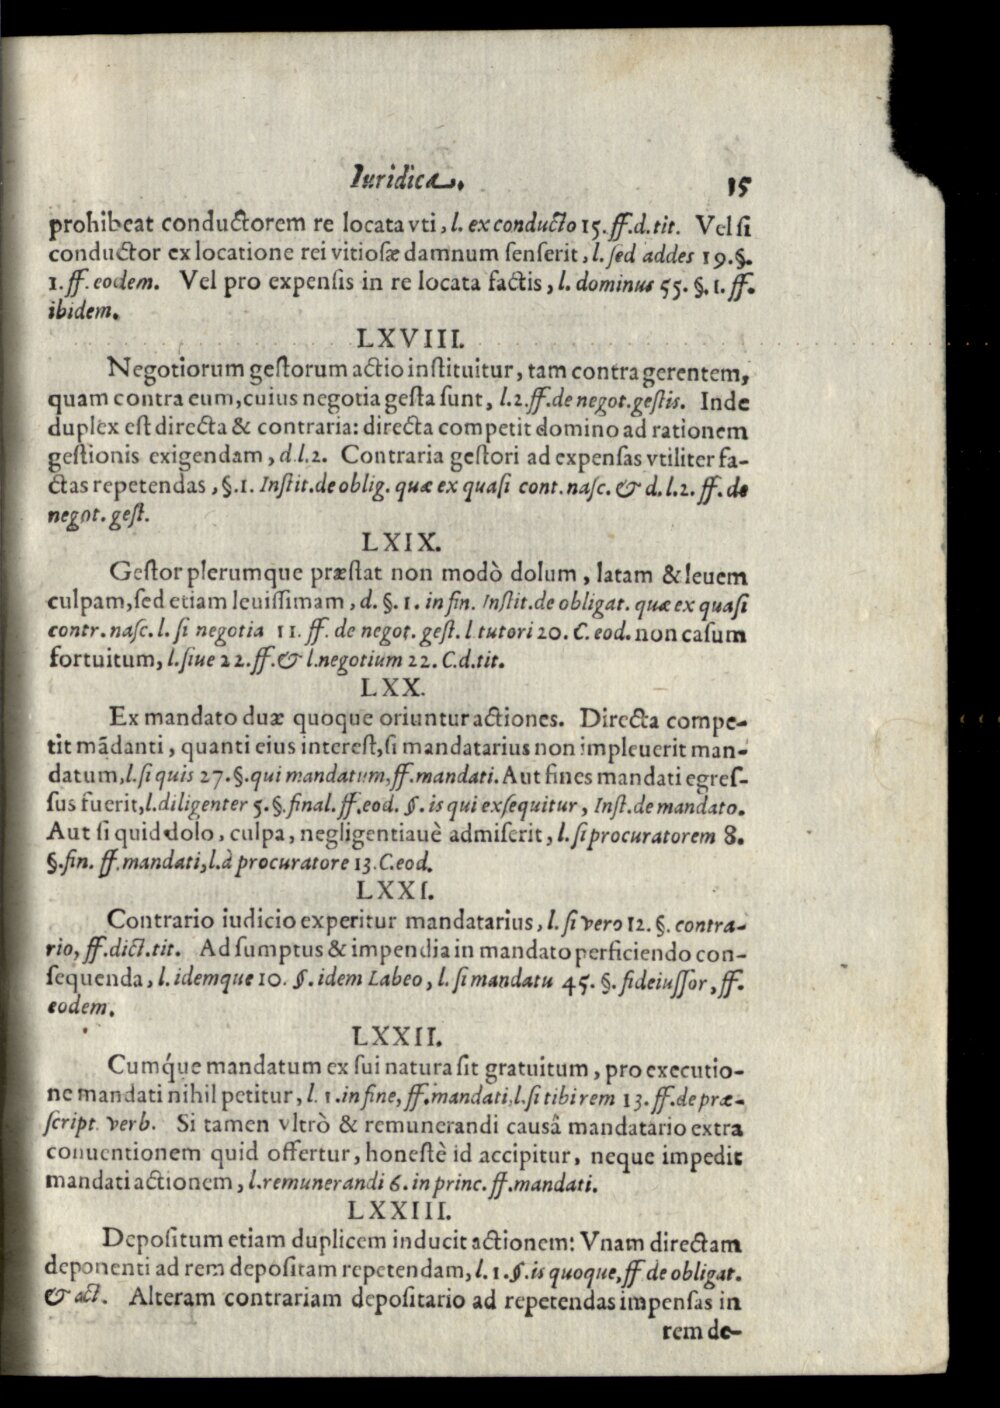 Iuridica. 15
prohibeat conductorem re locata vti, l. ex conducto 15. ff. d. tit. Vel si
conductor ex locatione rei vitiosæ damnum senserit, l. sed addes 19. §.
1. ff. eodem. Vel pro expensis in re locata factis, l. dominus 55. §. 1. ff.
ibidem.
LXVIII.
Negotiorum gestorum actio instituitur, tam contra gerentem,
quam contra eum, cuius negotia gesta sunt, l. 2. ff. de negot. gestis. Inde
duplex est directa & contraria: directa competit domino ad rationem
gestionis exigendam, d. l. 2. Contraria gestori ad expensas vtiliter fa-
ctas repetendas, §. 1. Instit. de oblig. quæ ex quasi cont. nasc. & d. l. 2. ff. de
negot. gest.
LXIX.
Gestor plerumque præstat non modò dolum, latam & leuem
culpam, sed etiam leuissimam, d. §. 1. in fin. Instit. de obligat. quæ ex quasi
contr. nasc. l. si negotia 11. ff. de negot. gest. l tutori 20. C. eod. non casum
fortuitum, l. siue 22. ff. & l. negotium 22. C. d. tit.
LXX.
Ex mandato duæ quoque oriuntur actiones. Directa compe-
tit mãdanti, quanti eius interest, si mandatarius non impleuerit man-
datum, l. si quis 27. §. qui mandatum, ff. mandati. Aut fines mandati egres-
sus fuerit, l. diligenter 5. §. final. ff. eod. §. is qui exsequitur, Inst. de mandato.
Aut si quid dolo, culpa, negligentiauè admiserit, l. si procuratorem 8.
§. fin. ff. mandati, l. à procuratore 13. C. eod.
LXXI.
Contrario iudicio experitur mandatarius, l. si vero 12. §. contra-
rio, ff. dict. tit. Ad sumptus & impendia in mandato perficiendo con-
sequenda, l. idemque 10. §. idem Labeo, l. si mandatu 45. §. fideiussor, ff.
eodem.
LXXII.
Cumq́ue mandatum ex sui natura sit gratuitum, pro executio-
ne mandati nihil petitur, l. 1. in fine, ff. mandati, l. si tibi rem 13. ff. de præ-
script. verb. Si tamen vltrò & remunerandi causâ mandatario extra
conuentionem quid offertur, honestè id accipitur, neque impedit
mandati actionem, l. remunerandi 6. in princ. ff. mandati.
LXXIII.
Depositum etiam duplicem inducit actionem: Vnam directam
deponenti ad rem depositam repetendam, l. 1. §. is quoque, ff. de obligat.
& act. Alteram contrariam depositario ad repetendas impensas in
rem de-